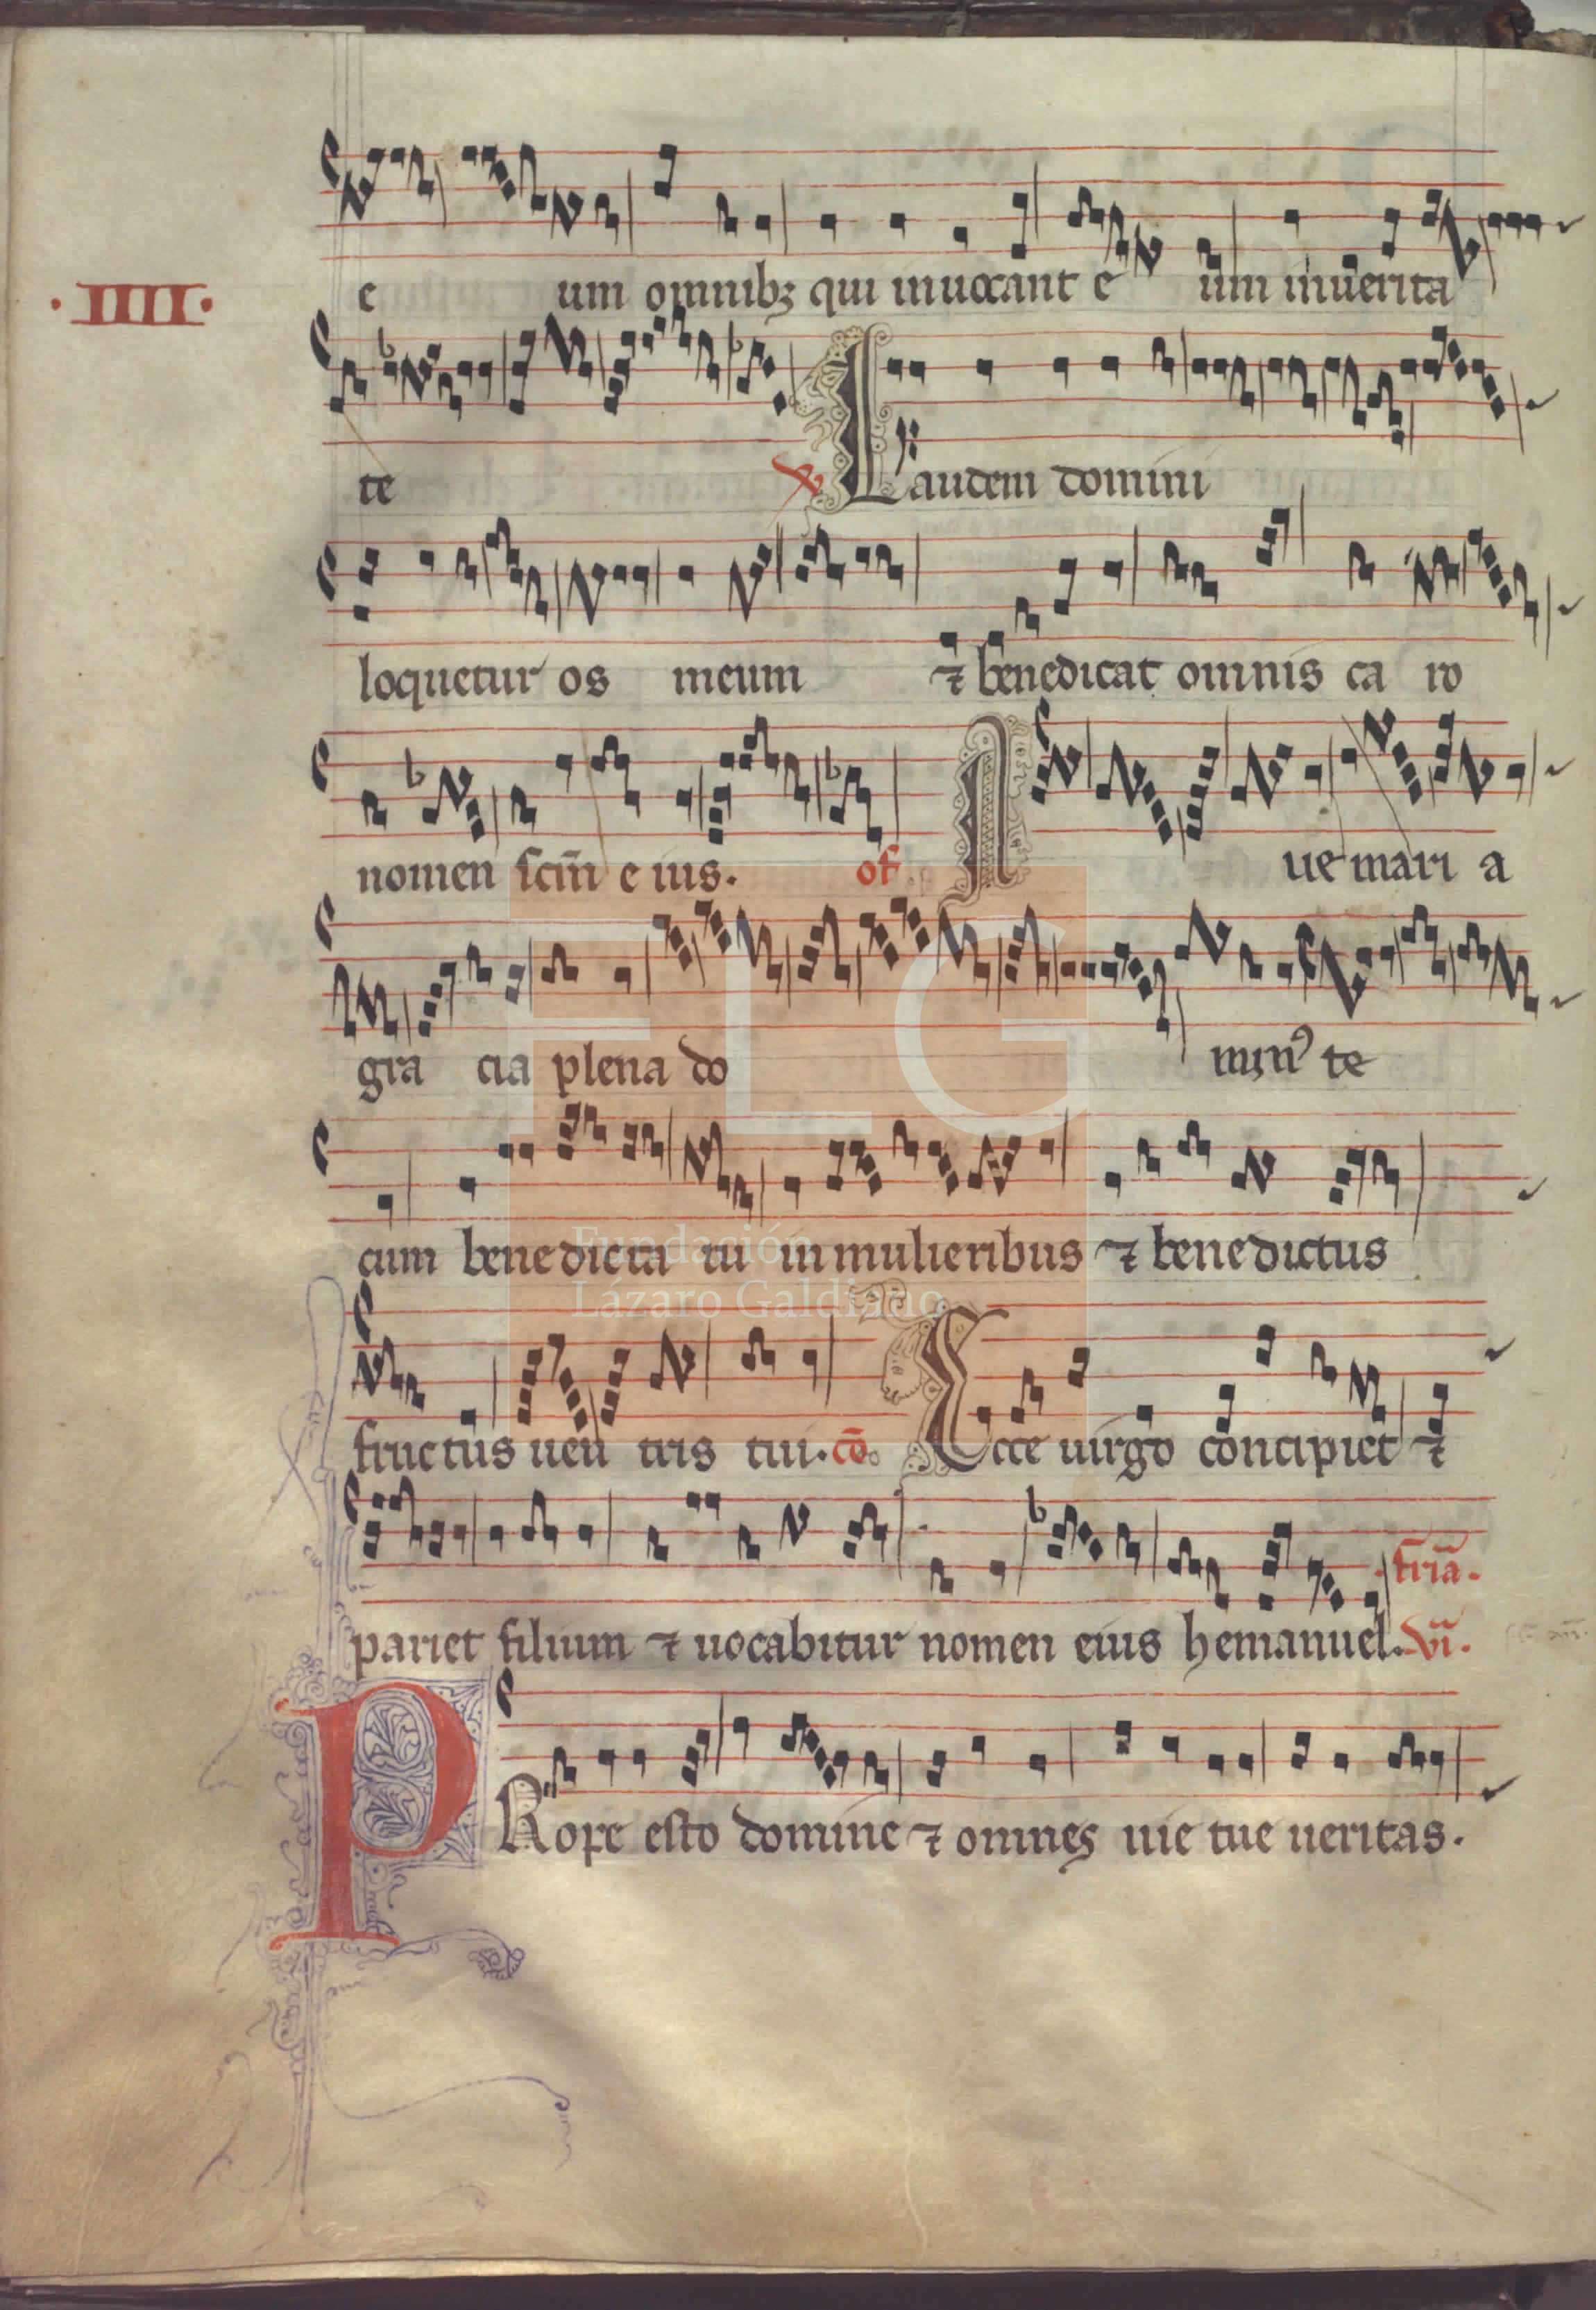 ·IIII·
e um omnibꝫ qui inuocant e um in uerita
te ℣ Laudem domini
loquetur os meum ⁊ benedicat omnis ca ro
nomen scm̄ e ius. of Aue mari a
gra cia plena do minꝰ te
cum benedicta tu in mulieribus ⁊ benedictus
fructus uen tris tui. cō. Ecce uirgo concipiet ⁊
pariet filium ⁊ uocabitur nomen eius hemanuel. friā. vi.
PRope esto domine ⁊ omnes uie tue ueritas.
FLG
Fundación
Lázaro Galdiano